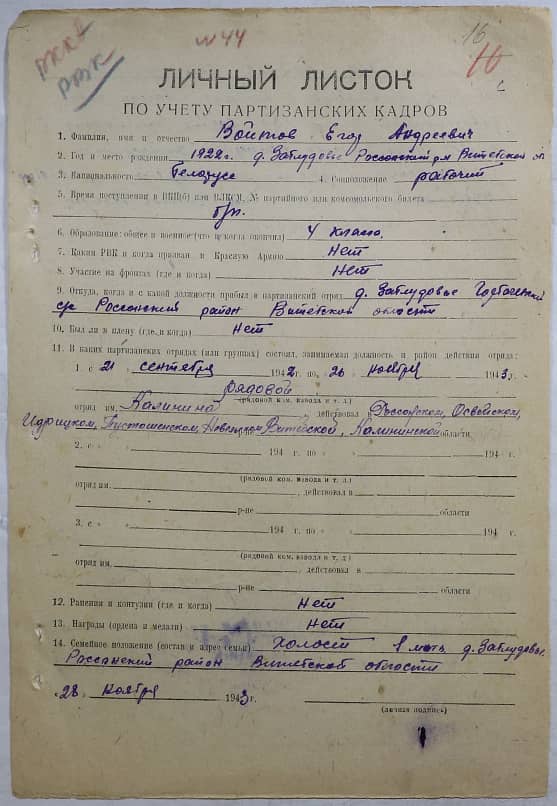 РККА
РВК
№ 44
16
10
ЛИЧНЫЙ ЛИСТОК
ПО УЧЕТУ ПАРТИЗАНСКИХ КАДРОВ
1. Фамилия, имя и отчество Войтов Егор Андреевич
2. Год и место рождения 1922г. д. Заблудовье Россонский р-н Витебской
3. Национальность Белорусс 4. Соцположение рабочий
5. Время поступления в ВКП(б) или ВЛКСМ, № партийного или комсомольского билета
б/п.
6. Образование: общее и военное (что и когда окончил) 4 класса.
7. Каким РВК и когда призван в Красную Армию Нет
8. Участие на фронтах (где и когда) Нет
9. Откуда, когда и с какой должности прибыл в партизанский отряд д. Заблудовье
с/с Россонский район Витебской области
10. Был ли в плену (где и когда) Нет
11. В каких партизанских отрядах (или группах) состоял, занимаемая должность и район действия отряда:
1. с 21 сентября 1942 г. по 26 ноября 1943 г.
рядовой
(рядовой ком. взвода и т. д.)
отряд им. Калинина действовал в Россонском, Освейском,
Идрицком, Пустошенском, Невельском Витебской, Калининской области
2. с " " 194 г. по " " 194 г.
(рядовой ком. взвода и т. д.)
отряд им. , действовал в
р-не области
3. с " " 194 г. по " " 194 г.
(рядовой ком. взвода и т. д.)
отряд им. , действовал в
р-не области
12. Ранения и контузии (где и когда) Нет
13. Награды (ордена и медали) Нет
14. Семейное положение (состав и адрес семьи) Холост 1 мать д. Заблудовье
Россонский район Витебской области
„28„ ноября 1943 г.
(личная подпись)